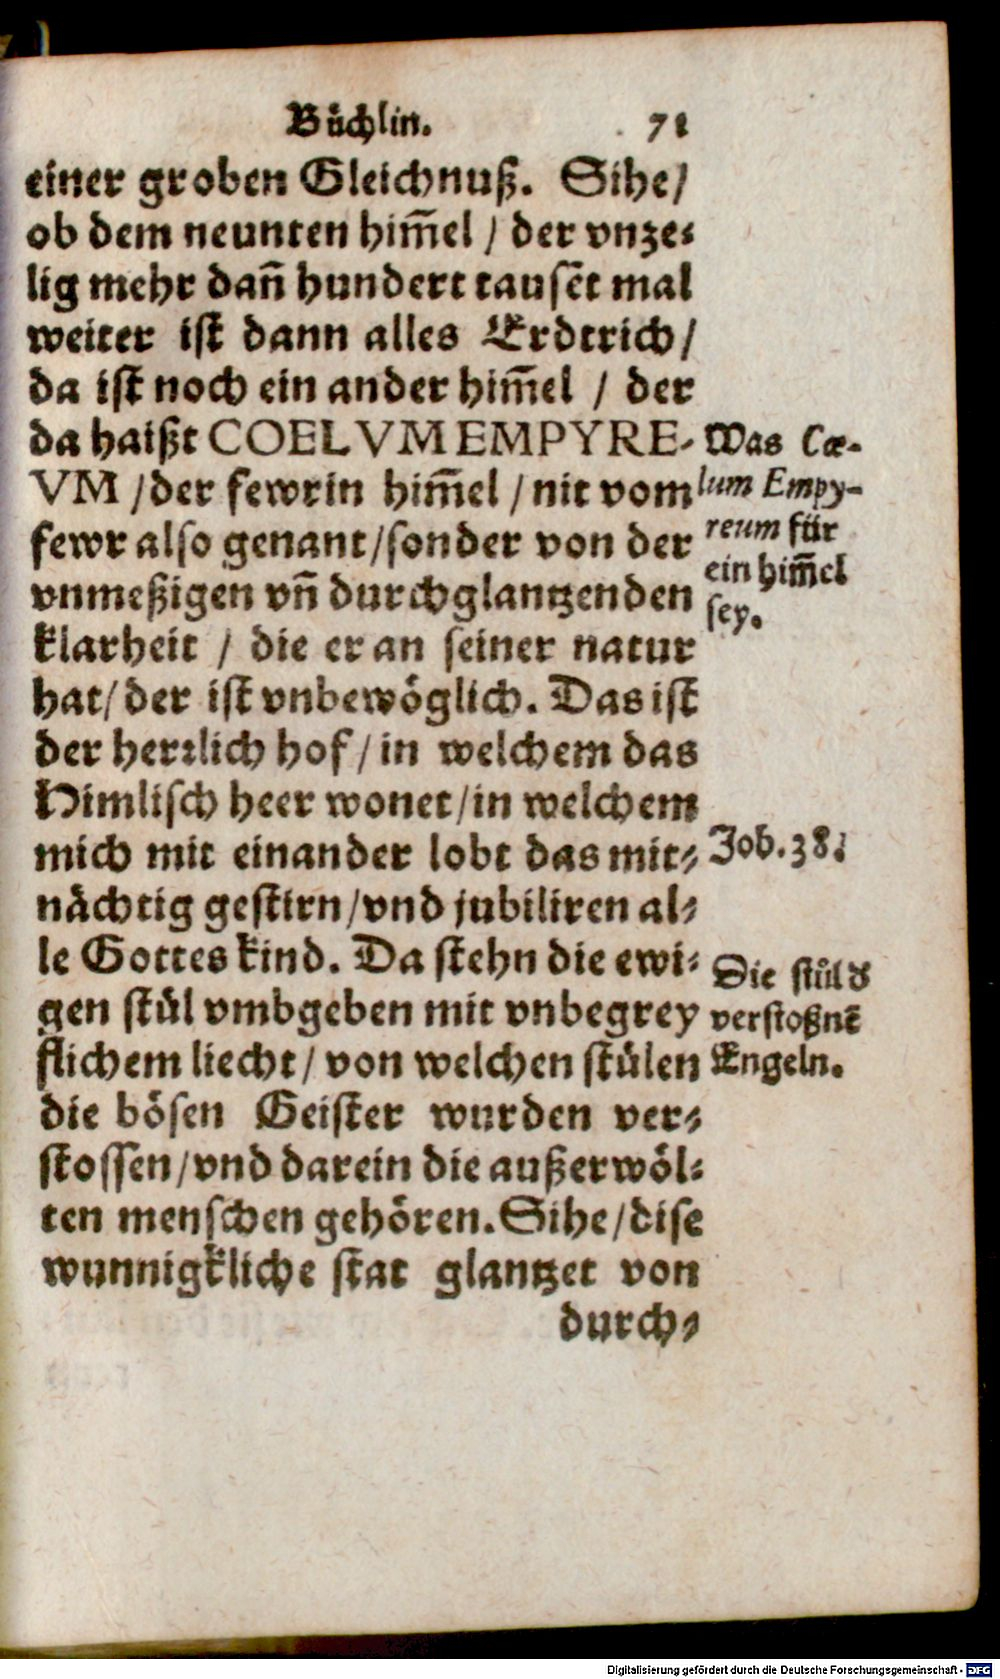 Büchlin. 71
einer groben Gleichnuß. Sihe/
ob dem neunten him̄el / der vnze-
lig mehr dañ hundert tausēt mal
weiter ist dann alles Erdtrich/
da ist noch ein ander him̄el / der
da haißt COELVM EMPYRE-
VM / der fewrin him̄el / nit vom
fewr also genant/sonder von der
vnmeßigen vñ durchglantzenden
klarheit / die er an seiner natur
hat/ der ist vnbewöglich. Das ist
der herrlich hof / in welchem das
Himlisch heer wonet/in welchem
mich mit einander lobt das mit-
nächtig gestirn/vnd jubiliren al-
le Gottes kind. Da stehn die ewi-
gen stül vmbgeben mit vnbegrey
flichem liecht / von welchen stülen
die bösen Geister wurden ver-
stossen/vnd darein die außerwöl-
ten menschen gehören. Sihe/dise
wunnigkliche stat glantzet von
durch-
Was Cœ-
lum Empy-
reum für
ein him̄el
sey.
Job. 38.
Die stül ds
verstoßnē
Engeln.
Digitalisierung gefördert durch die Deutsche Forschungsgemeinschaft - DFG